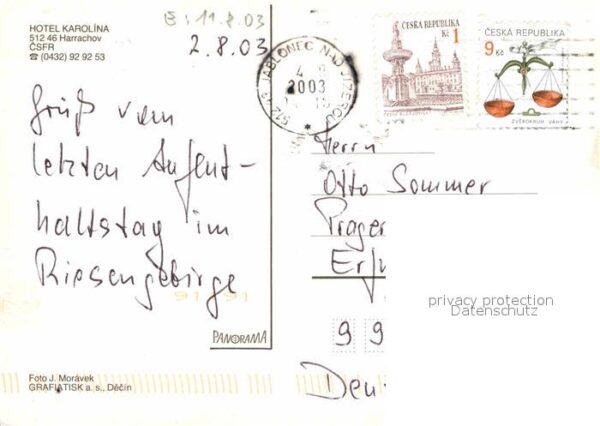 HOTEL KAROLÍNA
512 46 Harrachov
ČSFR
☎ (0432) 92 92 53
E: 11.8.03
2.8.03
Gruß vom
letzten Aufent-
haltstag im
Riesengebirge
PANORAMA
Foto J. Morávek
GRAFIATISK a. s., Děčín
JABLONEC NAD
2003
ČESKÁ REPUBLIKA
Kč 1
ČESKÁ REPUBLIKA
9 Kč
ZVĚROKRUH VÁHY
Herrn
Otto Sommer
Prager
Erfu
9 9
Deu
privacy protection
Datenschutz